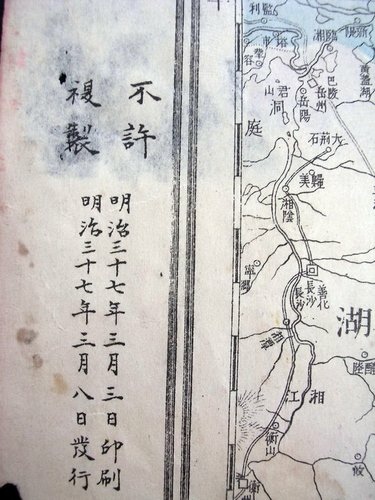 不許
複製
明治三十七年三月三日印刷
明治三十七年三月八日發行
監利
臨湘
巴陵
岳州
岳陽
君山
洞庭
湘陰
歸美
寧鄉
善化
長沙
長沙
湘潭
湖
醴陵
湘江
衡山
攸
衡州